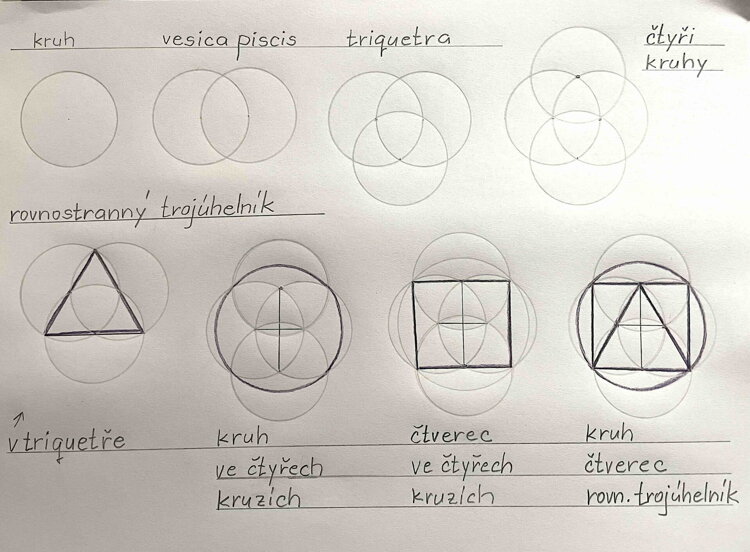 kruh
vesica piscis
triquetra
čtyři
kruhy
rovnostranný trojúhelník
v triquetře
kruh
ve čtyřech
kruzích
čtverec
ve čtyřech
kruzích
kruh
čtverec
rovn. trojúhelník